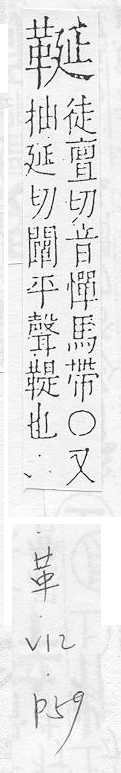 鞓
徒亶切音憚馬帶〇又
抽延切闡平聲鞮也
革
V12
P59